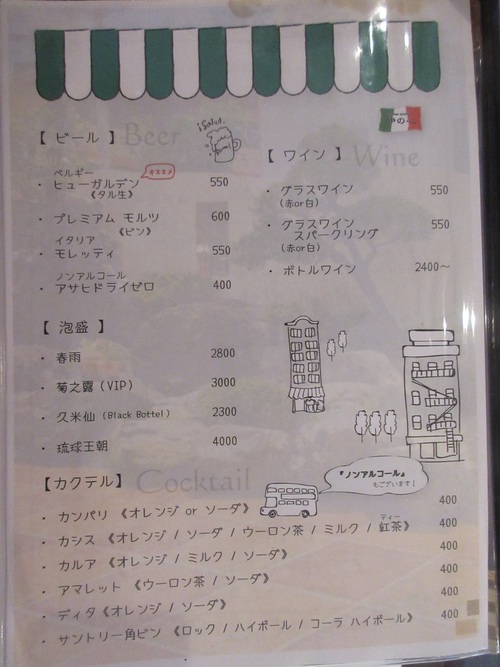 【 ビール 】 Beer
¡Salud!
ベルギー
・ ヒューガルデン オススメ 550
《タル生》
・ プレミアム モルツ 600
《ビン》
イタリア
・ モレッティ 550
ノンアルコール
・ アサヒドライゼロ 400
【 ワイン 】 Wine
・ グラスワイン 550
(赤or白)
・ グラスワイン 550
スパークリング
(赤or白)
・ ボトルワイン 2400〜
【 泡盛 】
・ 春雨 2800
・ 菊之露 (VIP) 3000
・ 久米仙 (Black Bottel) 2300
・ 琉球王朝 4000
【カクテル】 Cocktail
『ノンアルコール』
もございます!
・ カンパリ 《オレンジ or ソーダ》 400
ティー
・ カシス 《オレンジ / ソーダ / ウーロン茶 / ミルク / 紅茶》 400
・ カルア 《オレンジ / ミルク / ソーダ》 400
・ アマレット 《ウーロン茶 / ソーダ》 400
・ ディタ《オレンジ / ソーダ》 400
・ サントリー角ビン 《ロック / ハイボール / コーラ ハイボール》 400